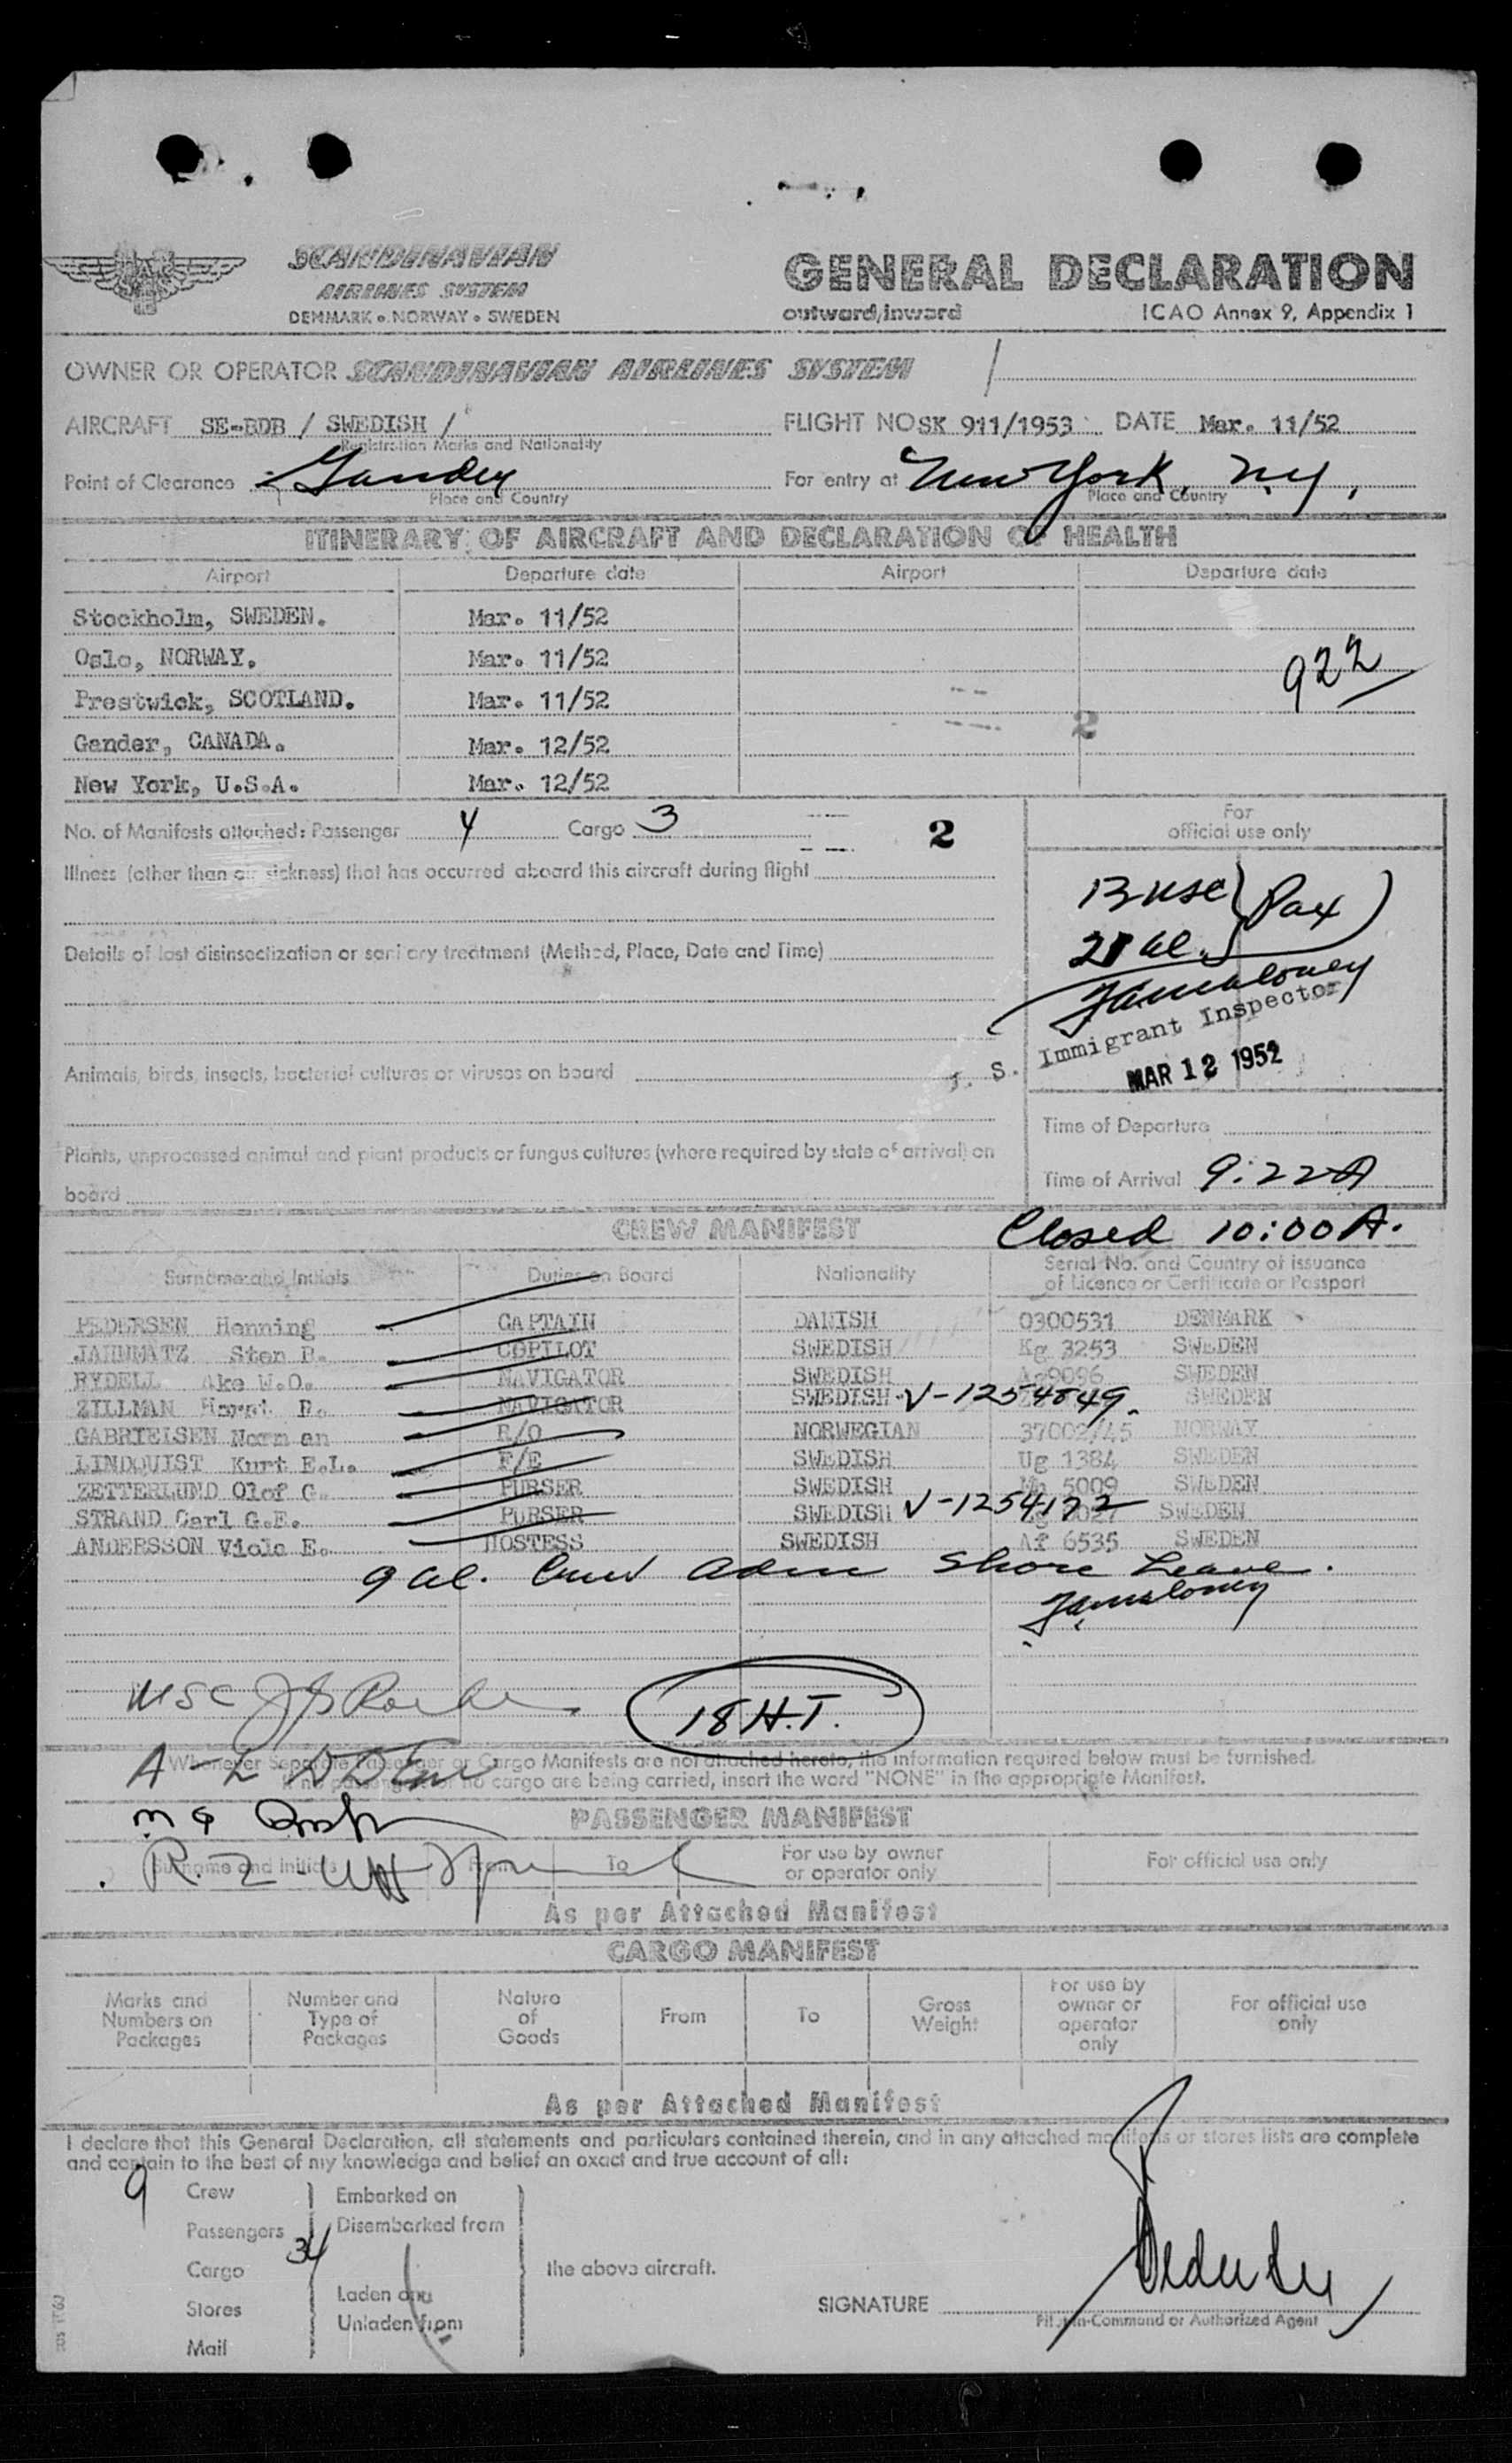 SCANDINAVIAN
AIRLINES SYSTEM
DENMARK • NORWAY • SWEDEN
GENERAL DECLARATION
outward/inward ICAO Annex 9, Appendix 1
OWNER OR OPERATOR SCANDINAVIAN AIRLINES SYSTEM /
AIRCRAFT SE-BDB / SWEDISH / FLIGHT NO SK 911/1953 DATE Mar. 11/52
Registration Marks and Nationality
Point of Clearance Gander For entry at New York, N.Y.
Place and Country Place and Country
ITINERARY OF AIRCRAFT AND DECLARATION OF HEALTH
Airport Departure date Airport Departure date
Stockholm, SWEDEN. Mar. 11/52
Oslo, NORWAY. Mar. 11/52 922
Prestwick, SCOTLAND. Mar. 11/52
2
Gander, CANADA. Mar. 12/52
New York, U.S.A. Mar. 12/52
No. of Manifests attached: Passenger 4 Cargo 3 2
For
official use only
Illness (other than air sickness) that has occurred aboard this aircraft during flight
13 USC } Pax )
21 Al.
Details of last disinsectization or sanitary treatment (Method, Place, Date and Time)
S. Immigrant Inspector
MAR 12 1952
Animals, birds, insects, bacterial cultures or viruses on board
Time of Departure
Plants, unprocessed animal and plant products or fungus cultures (where required by state of arrival) on
board
Time of Arrival 9:22A
CREW MANIFEST Closed 10:00 A.
Surname and Initials Duties on Board Nationality Serial No. and Country of issuance
of Licence or Certificate or Passport
PEDERSEN Henning CAPTAIN DANISH 0300531 DENMARK
Sten B. COPILOT SWEDISH Kg 3253 SWEDEN
RYDELL Ake W.O. NAVIGATOR SWEDISH 9096 SWEDEN
ZILLMAN Horst NAVIGATOR SWEDISH V-1254849. SWEDEN
GABRIELSEN Norman R/O NORWEGIAN 37002/45 NORWAY
LINDQUIST Kurt E.L. F/E SWEDISH Ug 1384 SWEDEN
ZETTERLUND Olof G. PURSER SWEDISH 5009 SWEDEN
STRAND Carl G.E. PURSER SWEDISH V-1254172 SWEDEN
ANDERSSON Viola E. HOSTESS SWEDISH Af 6535 SWEDEN
9 al. Crew Adm Shore Leave.
USC
18 H.T.
Whenever Separate Passenger or Cargo Manifests are not attached hereto, the information required below must be furnished.
If no passengers or no cargo are being carried, insert the word "NONE" in the appropriate Manifest.
PASSENGER MANIFEST
Surname and Initials From To For use by owner
or operator only For official use only
As per Attached Manifest
CARGO MANIFEST
Marks and
Numbers on
Packages
Number and
Type of
Packages
Nature
of
Goods
From
To
Gross
Weight
For use by
owner or
operator
only
For official use
only
As per Attached Manifest
I declare that this General Declaration, all statements and particulars contained therein, and in any attached manifests or stores lists are complete
and contain to the best of my knowledge and belief an exact and true account of all:
9 Crew Embarked on
Passengers 34 Disembarked from
Cargo the above aircraft.
Laden on
Stores SIGNATURE
Unladen from Pilot-in-Command or Authorized Agent
Mail